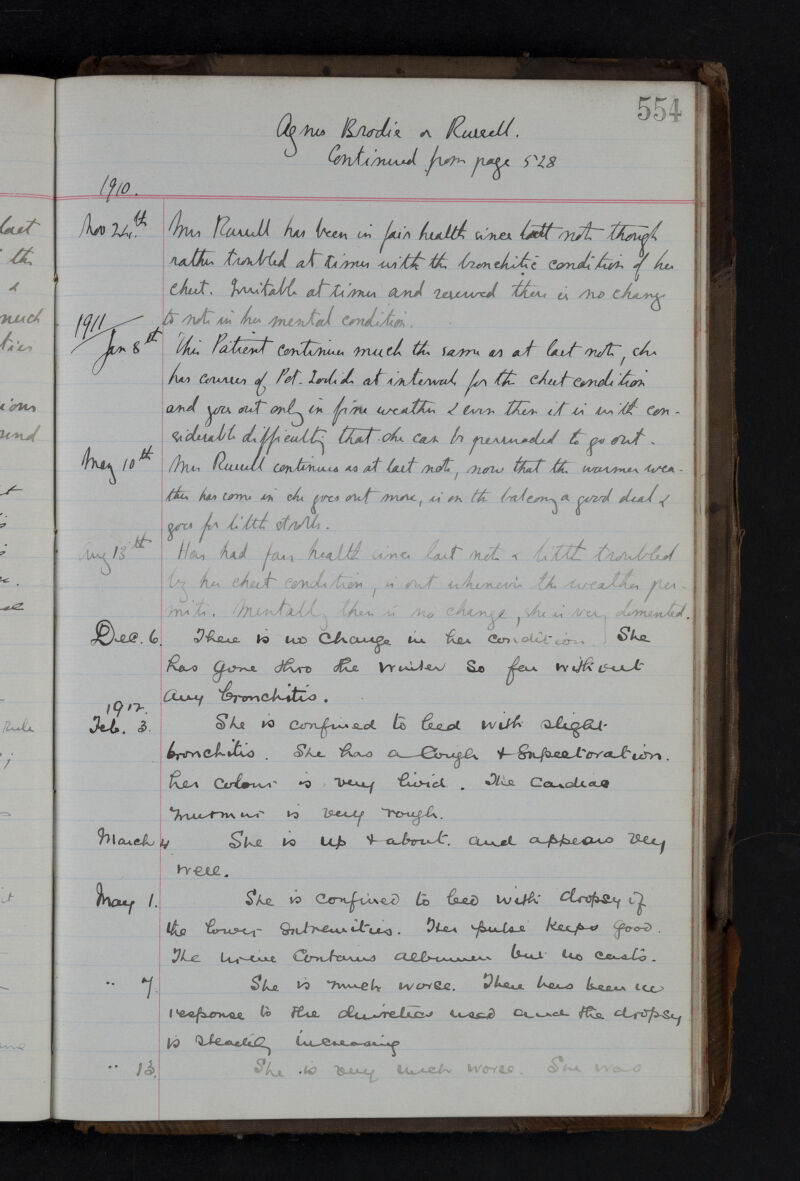 554
Agnes Brodie or Russell.
Continued from page 528
1910.
Nov 24th Mrs Russell has been in fair health since last note though
rather troubled at times with the bronchitic condition of her
chest. Irritable at times and reserved there is no change
to note in her mental condition.
1911
Jan 8th This Patient continues much the same as at last note, she
has courses of Pot. Iodide at intervals for the chest condition
and goes out only in fine weather & even then it is with con-
siderable difficulty that she can be persuaded to go out.
May 10th Mrs Russell continues as at last note, now that the warmer wea-
ther has come in she goes out more, is on the balcony a good deal &
goes for little strolls.
Aug 13th Has had fair health since last note & little troubled
by her chest condition, is out whenever the weather per-
mits. Mentally there is no change, she is very demented.
Dec. 6. There is no change in her condition. She
has gone thro the winter so far without
any bronchitis.
1912.
Feb. 3. She is confined to bed with slight
bronchitis. She has a Cough & Expectoration.
her colour is very livid. The Cardiac
murmur is very rough.
March 4 She is up & about. and appears very
well.
May 1. She is confined to bed with dropsy of
the lower Extremities. Her pulse keeps good.
The urine Contains albumen but no casts.
" 7. She is much worse. There has been no
response to the diuretics used and the dropsy
is steadily increasing
" 13. She is very much worse. She was